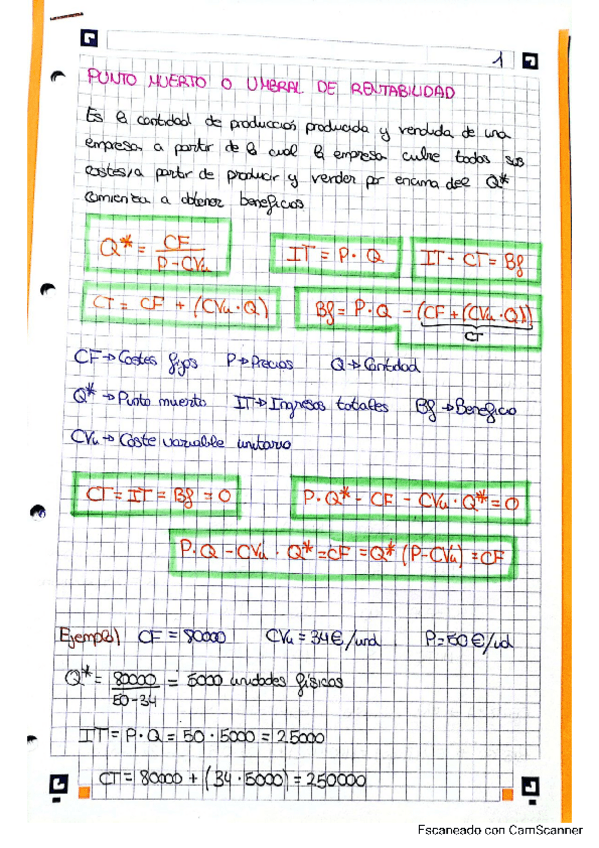 1
PUNTO MUERTO O UMBRAL DE RENTABILIDAD
Es la cantidad de producción producida y vendida de una
empresa a partir de la cual la empresa cubre todos sus
costes/a partir de producir y vender por encima del Q*
comienza a obtener beneficios
Q* = CF / P-CVu
IT = P · Q
IT - CT = Bf
CT = CF + (CVu · Q)
Bf = P · Q - (CF + (CVu · Q))
CT
CF → Costes fijos P → Precios Q → Cantidad
Q* → Punto muerto IT → Ingresos totales Bf → Beneficio
CVu → Coste variable unitario
CT = IT = Bf = 0
P · Q* - CF - CVu · Q* = 0
P · Q - CVu · Q* = CF = Q* (P-CVu) = CF
Ejemplo) CF = 80000 CVu = 34€/und P = 50€/ud
Q* = 80000 / 50-34 = 5000 unidades físicas
IT = P · Q = 50 · 5000 = 25000
CT = 80000 + (34 · 5000) = 250000
Escaneado con CamScanner